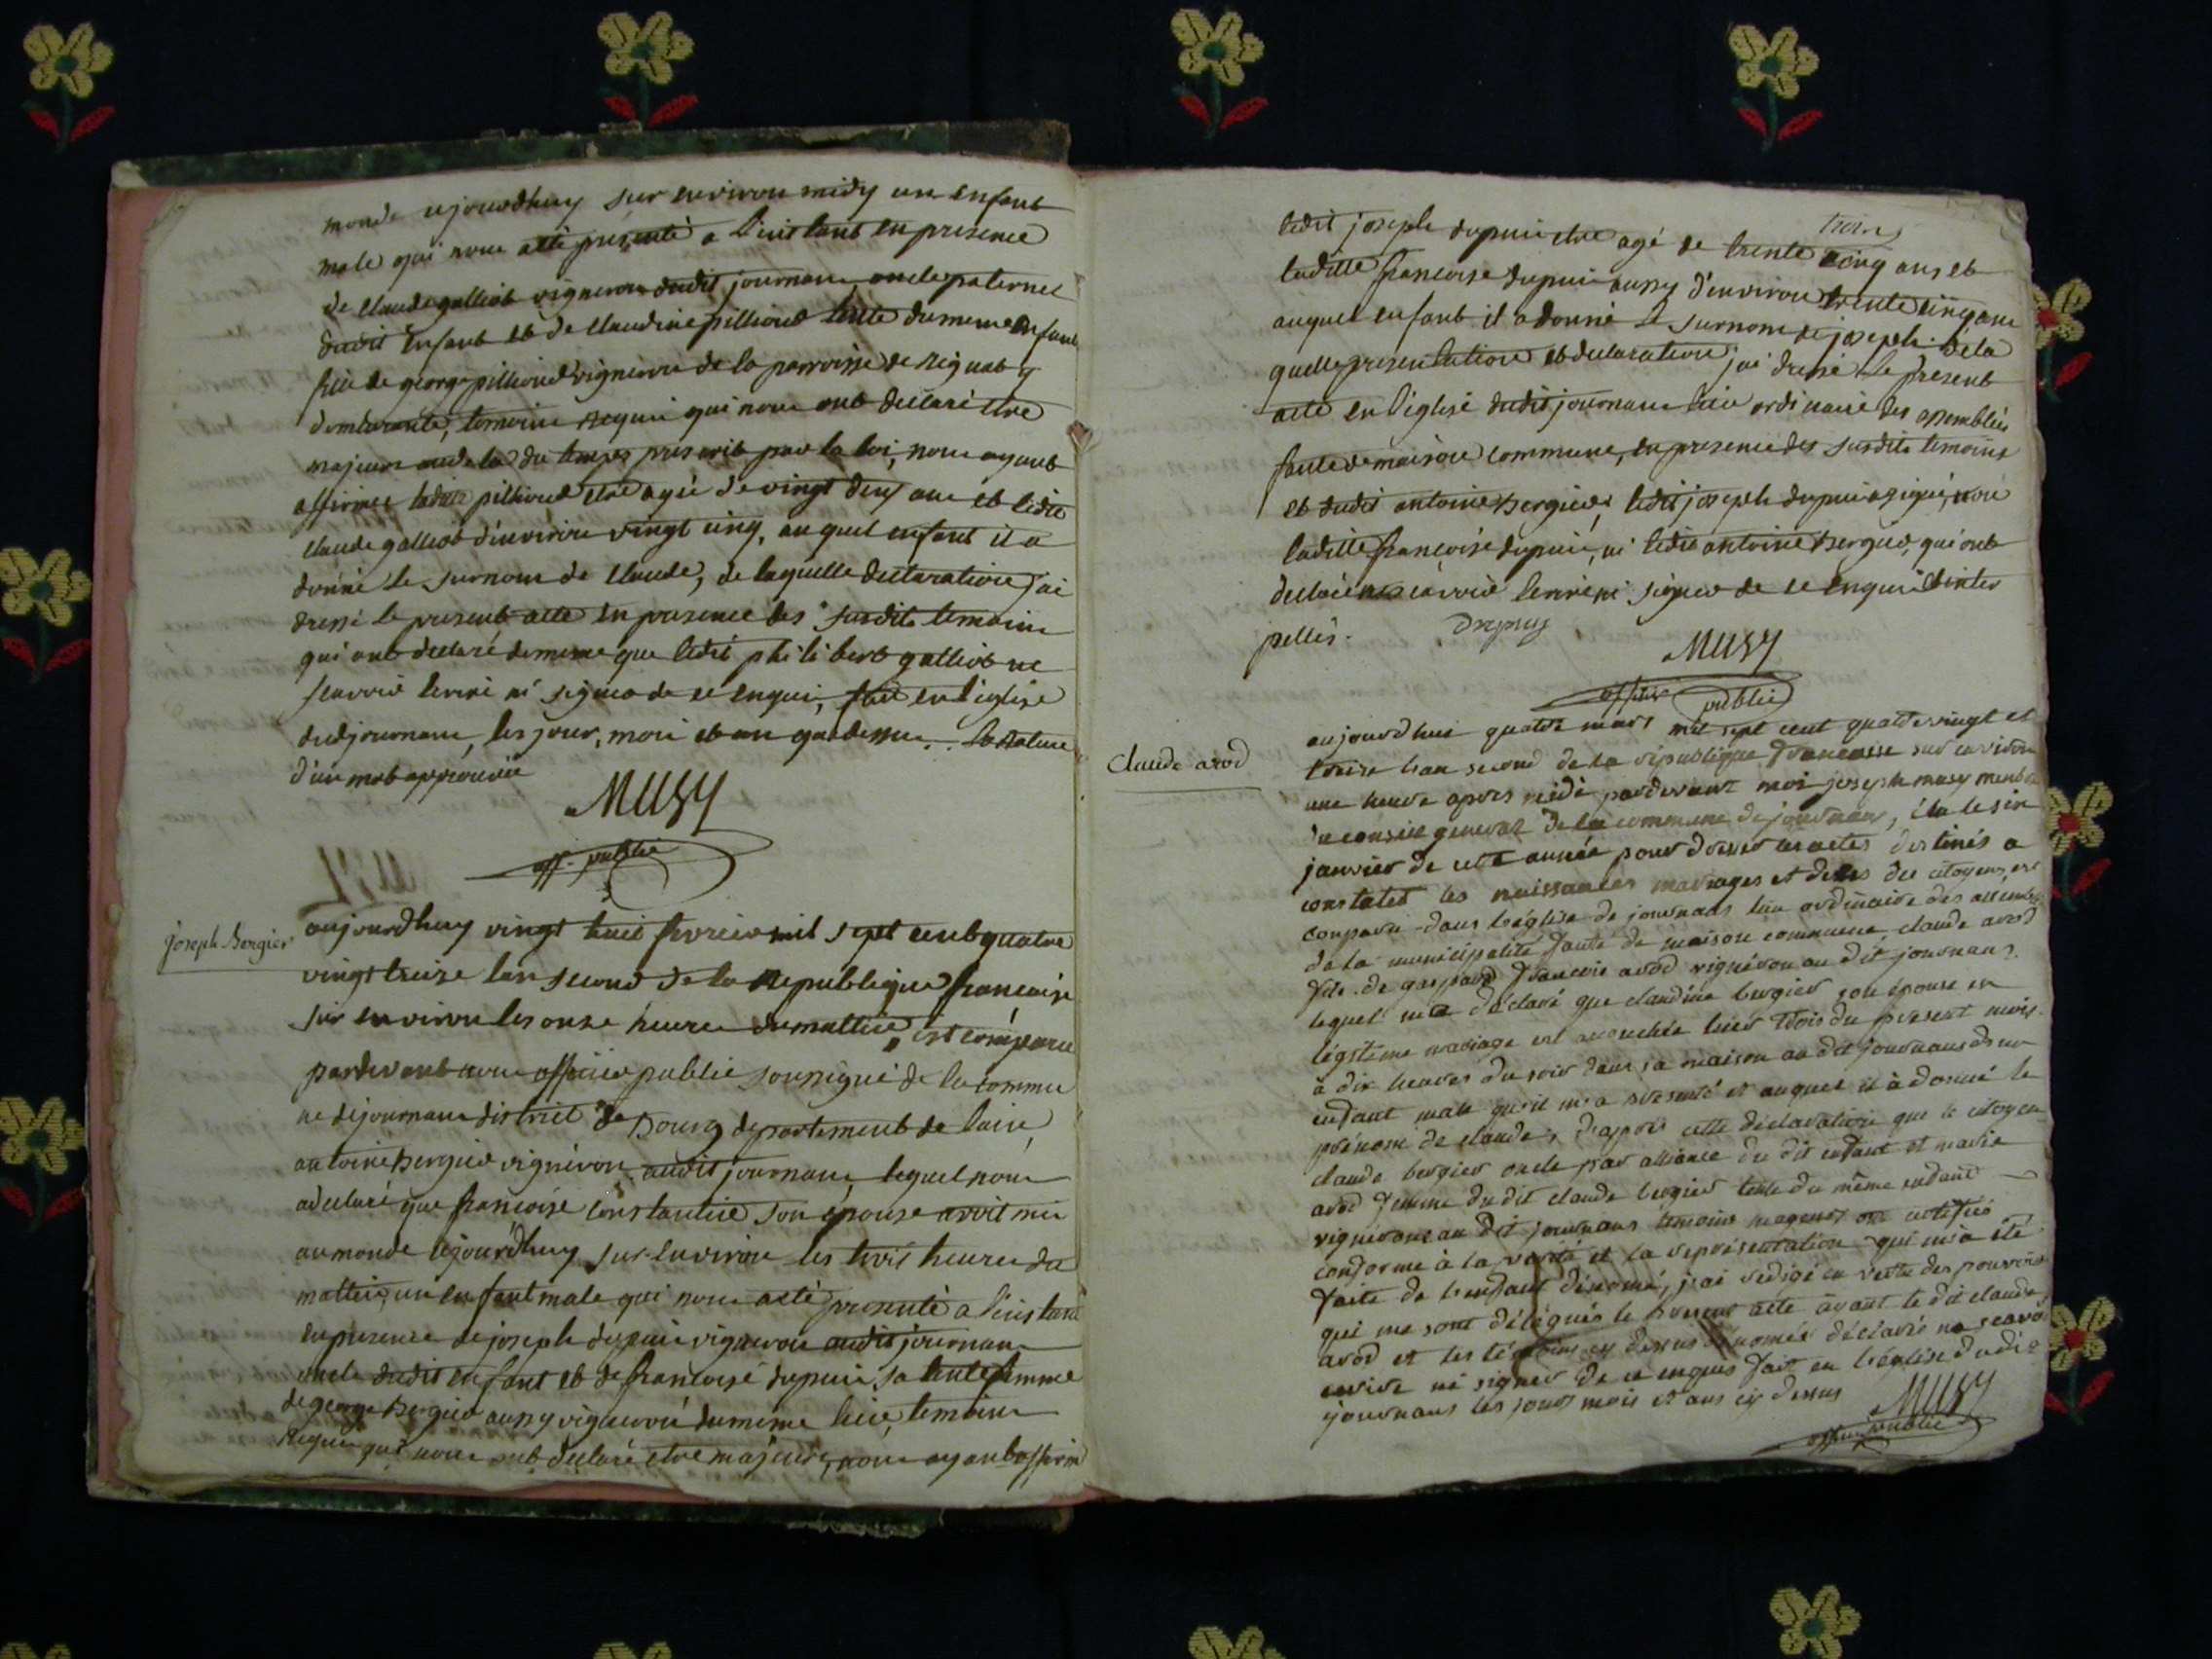 monde ajourdhuy sur environ midy un enfant
male qui nous atté présenté a linistant en presence
de claude galliot vigneron dudit journans oncle paternel
dudit enfant et de claudine pillioud tente du meme enfant
fille de george pillioud vigneron de la parroisse de
demeurante, temoins requis qui nous ont declaré etre
majeurs audela du temps prescrit par la loi, nous ayant
affirmee ladite pillioud etre agée de vingt deux ans et ledit
claude galliot d'environ vingt cinq, au quel enfant il a
donné le surnom de claude, de laquelle declaration jai
dressé le present acte en presence des susdits temoins
qui ont declaré de meme que ledit philibert galliot ne
scavoir lecrire ni signer de ce enquis, fait en léglise
dud journans, les jour, mois et an que dessus. la rature
d'un mot approuvée
Musy
off. public
Joseph Bergier
aujourdhuy vingt huit fevrier mil sept cent quatre
vingt treize lan second de la Republique francaise
sur environ les onze heures du mattin, est comparu
pardevant nous officier public soussigné de la commu
ne de journans district de Bourg departement de lain,
antoine Bergier vigneron audit journans, lequel nous
adeclaré que francoise constantin son épouse avoit mis
au monde cejourdhuy sur environ les trois heures du
mattin, un enfant male qui nous aeté presenté a linistant
en presence de joseph dupuis vigneron audit journans
oncle dudit enfant et de francoise dupuis sa tente femme
de george Bergier aussy vigneron du meme lieu, temoins
Requis qui nous ont declaré etre majeurs, nous ayant affirmé
ledit joseph dupuis etre agé de trente trois cinq ans et
laditte francoise dupuis aussy d'environ trente cinq ans
auquel enfant il a donné le surnom de joseph. De la
quelle presentation et declaration jai dressé le present
acte en l'église dudit journans lieu ordinaire des assemblées
faute de maison commune, en presence des susdits temoins
et dudit antoine Bergier, ledit joseph dupuis a signé, non
laditte francoise dupuis, ni ledit antoine Bergier, qui ont
declaré ne scavoir lecrire ni signer de ce enquis et inter
pellés. Dupuis
Musy
officier public
Claude arod
aujourd'hui quatre mars mil sept cent quatrevingt et
treize l'an second de la république francaise sur environ
une heure apres midi pardevant moi joseph musy membre
du conseil general de la commune de journans, élu le six
janvier de cette année pour dresser les actes destinés a
constater les naissances mariages et décès des citoyens, est
comparu dans l'église de journans lieu ordinaire des assemblées
de la municipalité faute de maison commune, claude arod
fils de gaspard francois arod vigneron au dit journans.
lequel m'a déclaré que claudine bergier son épouse en
légitime mariage est accouchée hier trois du present mois
à dix heures du soir dans sa maison au dit journans d'un
enfant male qu'il m'a presenté et auquel il à donné le
prénom de claude, d'apres cette déclaration que le citoyen
claude bergier oncle par alliance du dit enfant et marie
arod femme du dit claude bergier tente du même enfant
vignerons au dit journans temoins mageurs ont certifié
conforme à la verité et la représentation qui m'a été
faite de l'enfant dénomé, j'ai redigé en vertu des pouvoirs
qui me sont délégués le present acte ayant le dit claude
arod et les témoins cy dessus dénomés déclaré ne scavoir
écrire ni signer de ce enquis fait en l'église du dit
journans les jours mois et ans cy dessus
Musy
officier public